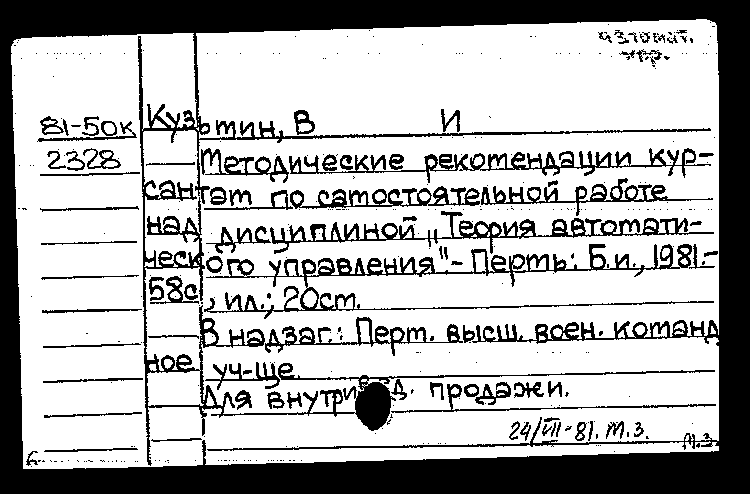 автомат.
упр.
81-50к Кузьмин, В И
2328 Методические рекомендации кур-
сантам по самостоятельной работе
над дисциплиной „Теория автомати-
ческого управления".- Пермь: Б.и., 1981.-
58с., ил.; 20см.
В надзаг.: Перм. высш. воен. команд
ное уч-ще.
Для внутривед. продажи.
24/VII-81. м.з. м.з.